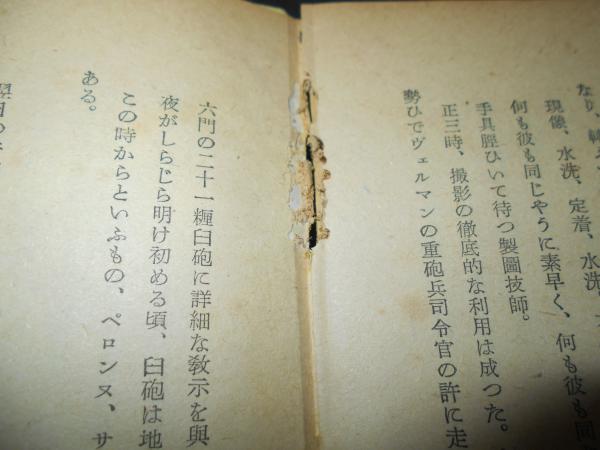 なり、
現像、水洗、定着、水洗、
何も彼も同じやうに素早く、何も彼も同
手具脛ひいて待つ製圖技師。
正三時、撮影の徹底的な利用は成つた。
勢ひでヴェルマンの重砲兵司令官の許に走
六門の二十一糎臼砲に詳細な敎示を與
夜がしらじら明け初める頃、臼砲は地
この時からといふもの、ペロンヌ、サ
ある。
翌日の